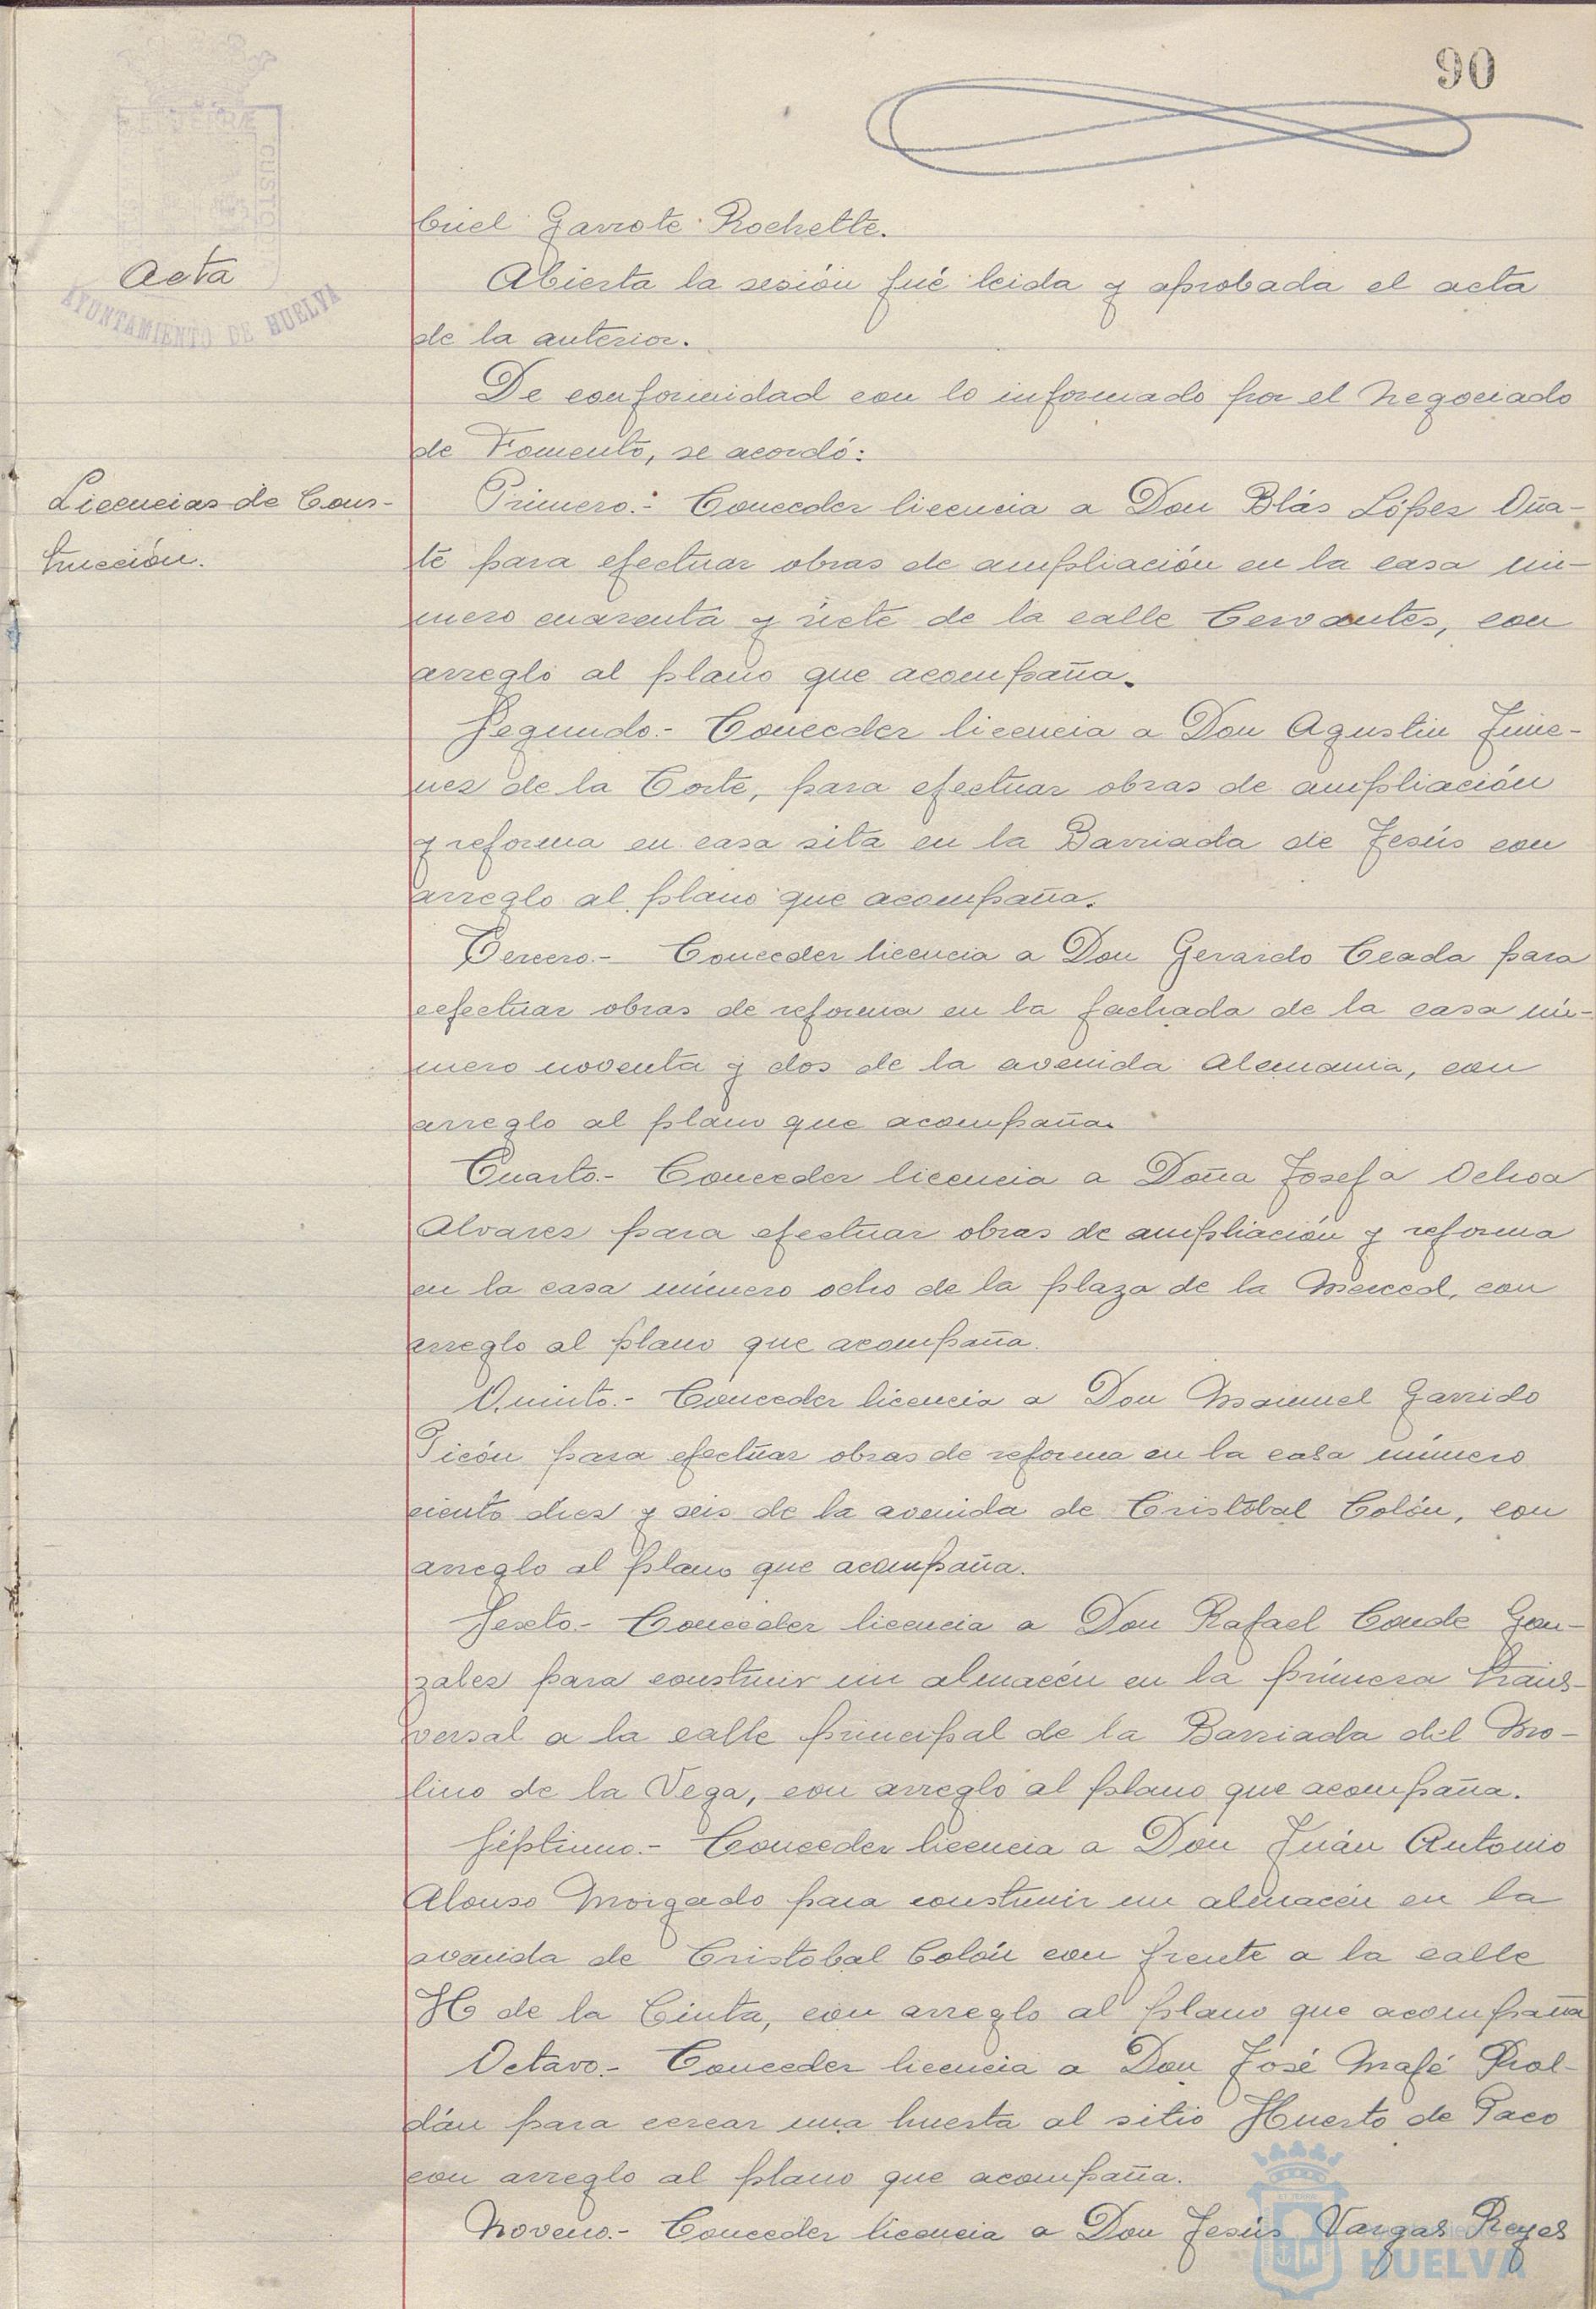 90
cuel Garrote Rochette.
Acta
Abierta la sesión fué leida y aprobada el acta
AYUNTAMIENTO DE HUELVA
de la anterior.
De conformidad con lo informado por el Negociado
de Fomento, se acordó:
Licencias de Cons-
Primero.- Conceder licencia a Don Blás López Oña-
trucción.
te para efectuar obras de ampliación en la casa nú-
mero cuarenta y siete de la calle Cervantes, con
arreglo al plano que acompaña.
Segundo.- Conceder licencia a Don Agustin Jime-
nez de la Corte, para efectuar obras de ampliación
y reforma en casa sita en la Barriada de Jesús con
arreglo al plano que acompaña.
Tercero.- Conceder licencia a Don Gerardo Ceada para
eefectuar obras de reforma en la fachada de la casa nú-
mero noventa y dos de la avenida Alemania, con
arreglo al plano que acompaña.
Cuarto.- Conceder licencia a Doña Josefa Ochoa
Alvarez para efectuar obras de ampliación y reforma
en la casa número ocho de la plaza de la Merced, con
arreglo al plano que acompaña.
Quinto.- Conceder licencia a Don Manuel Garrido
Picón para efectuar obras de reforma en la casa número
ciento diez y seis de la avenida de Cristóbal Colón, con
arreglo al plano que acompaña.
Sexto.- Conceder licencia a Don Rafael Conde Gon-
zalez para construir un almacén en la primera trans-
versal a la calle principal de la Barriada del Mo-
lino de la Vega, con arreglo al plano que acompaña.
Séptimo.- Conceder licencia a Don Juán Antonio
Alonso Morgado para construir un almacén en la
avenida de Cristobal Colón con frente a la calle
H de la Cinta, con arreglo al plano que acompaña
Octavo.- Conceder licencia a Don José Mafé Rol-
dán para cercar una huerta al sitio Huerto de Paco
con arreglo al plano que acompaña.
Noveno.- Conceder licencia a Don Jesús Vargas Reyes
HUELVA